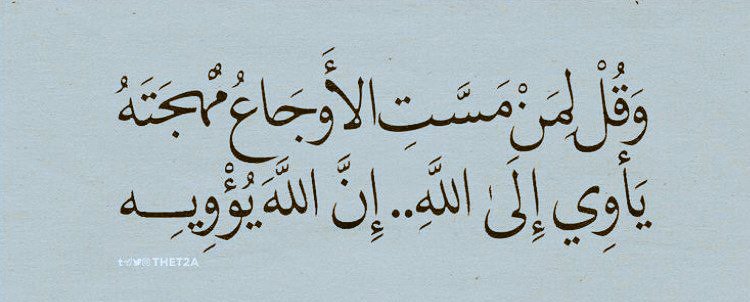 وَقُلْ لِمَنْ مَسَّتِ الأَوجَاعُ مُهجَتَهُ
يَأوِي إِلَى اللَّهِ.. إِنَّ اللَّهَ يُؤْوِيـــهِ
THET2A